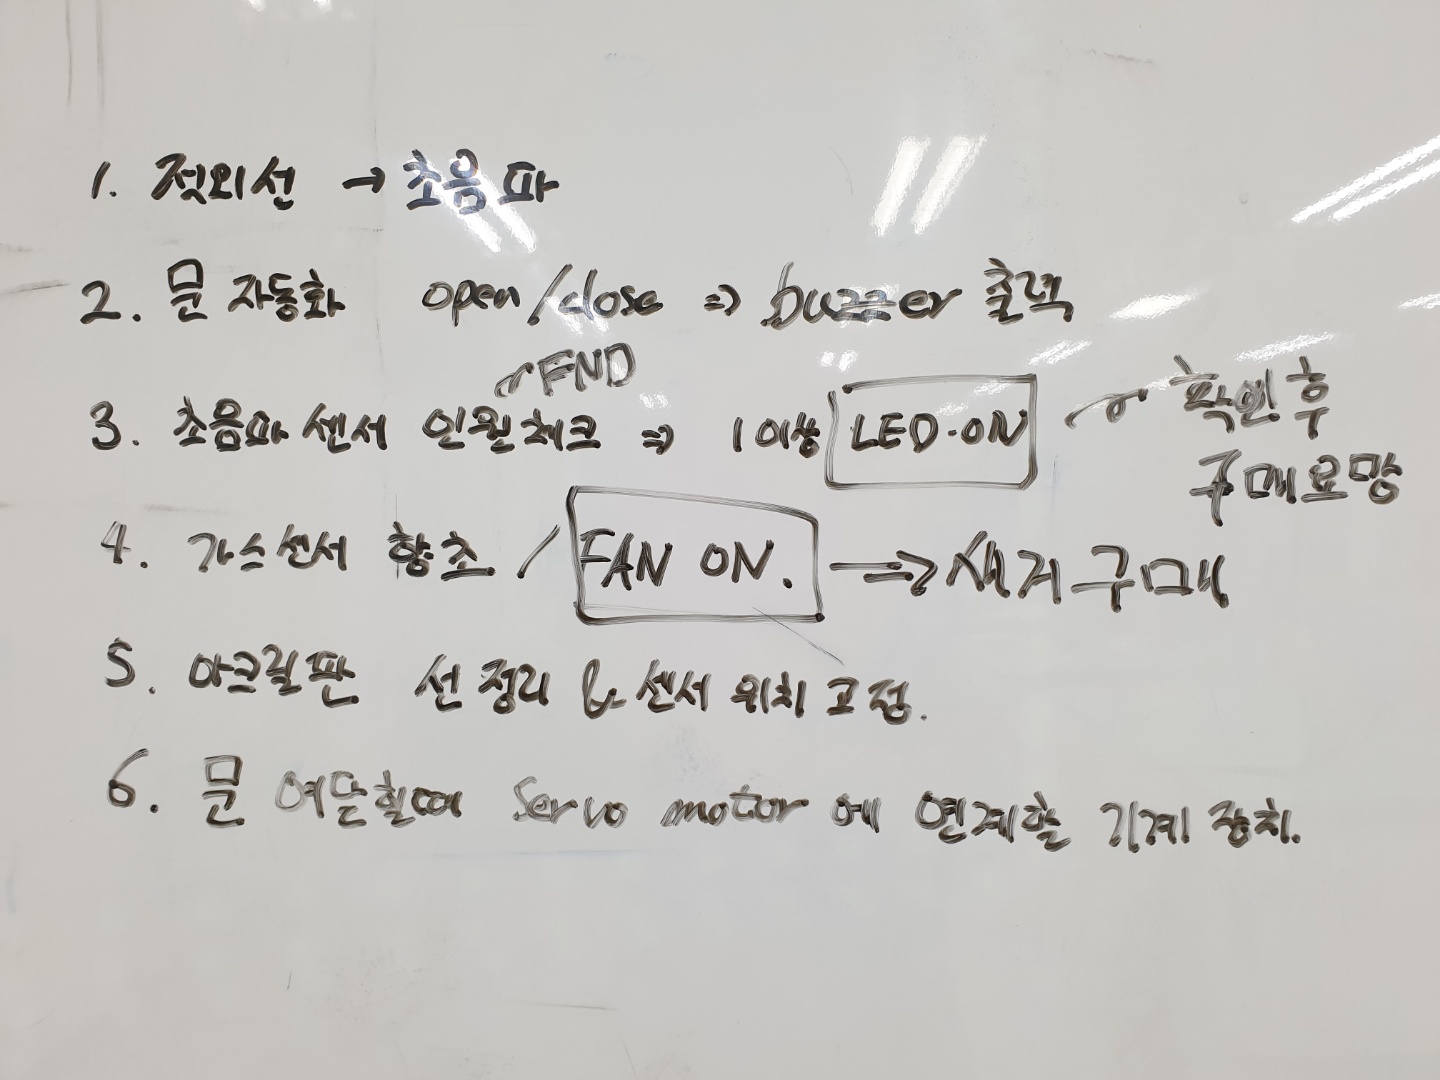 1. 적외선 → 초음파
2. 문 자동화 open/close ⇒ buzzer 출력
~FND
3. 초음파 센서 인원체크 ⇒ 1이상 LED·ON ~ 확인 후
구매요망
4. 가스센서 향초 / FAN ON. → 새거 구매
5. 아크릴판 선 정리 & 센서 위치 고정.
6. 문 여닫힐때 Servo motor에 연계할 기계 장치.